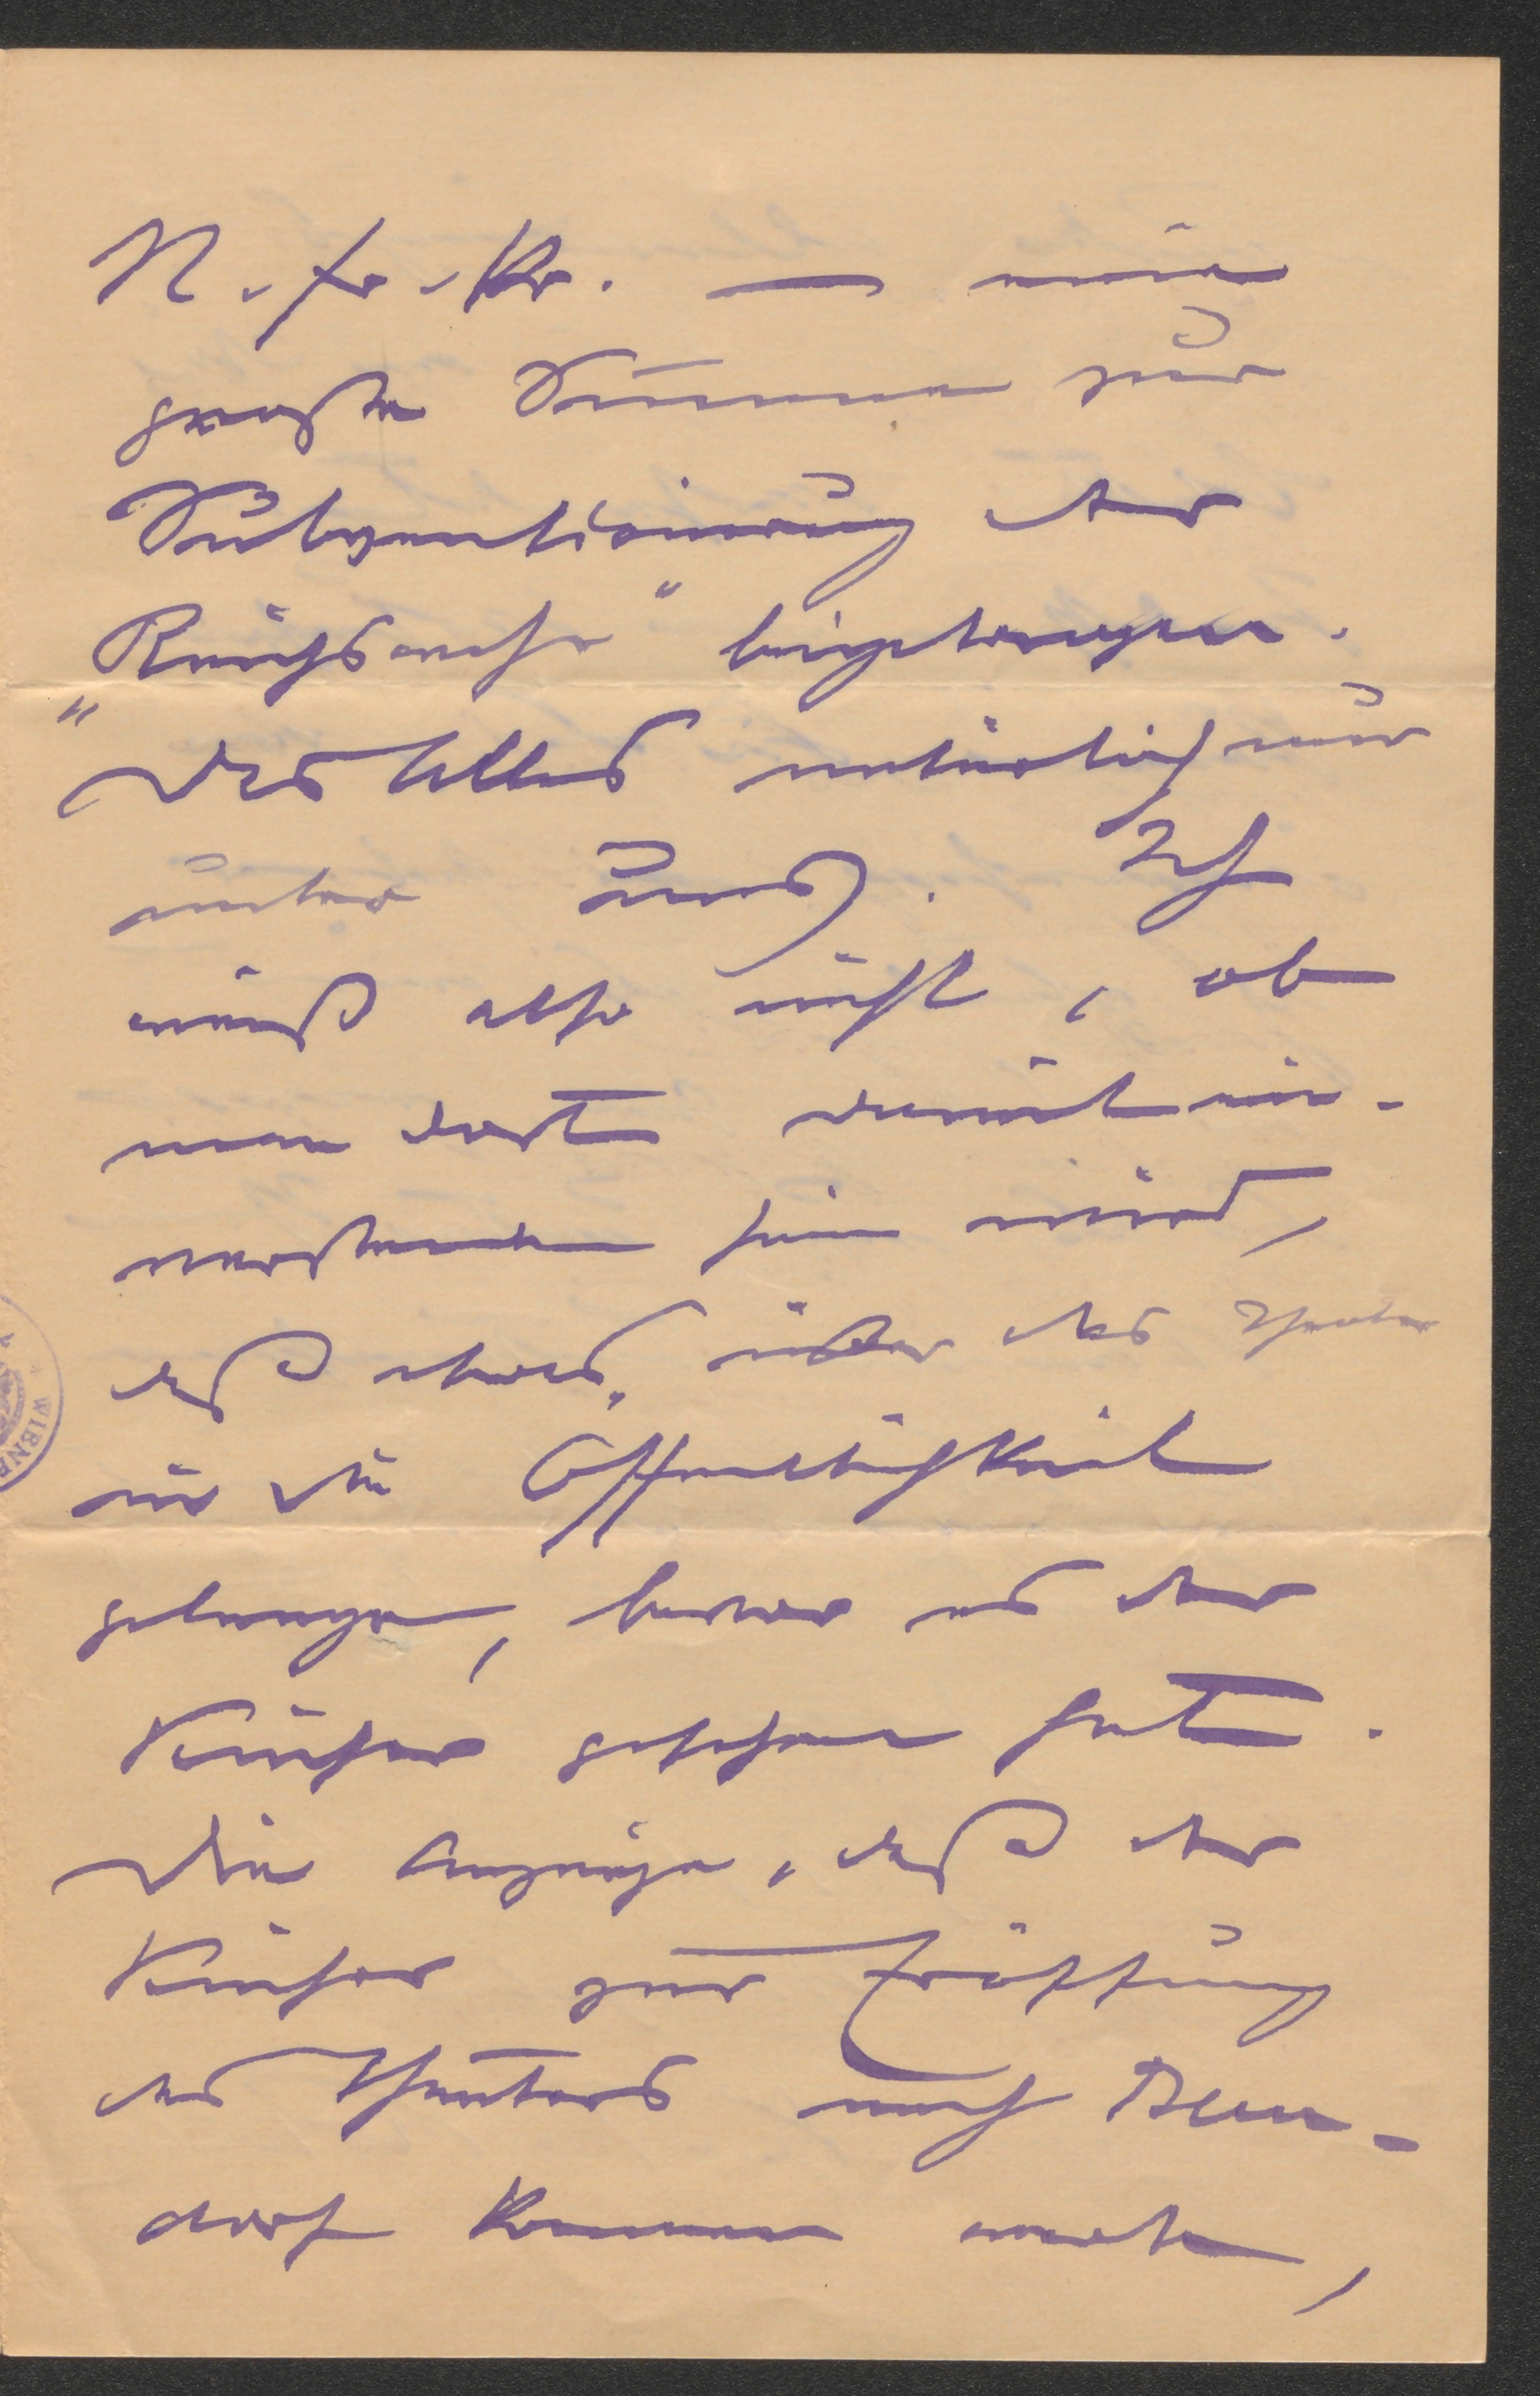 N. fr. Pr. — eine
große Summe zur
Subventionirung der
„Reichswehr“ beigetragen.
Das Alles natürlich nur
unter uns). Ich
weiß also nicht, ob
man dort damit ein-
verstanden sein wird,
daß etwas über das Theater
in die Öffentlichkeit
gelange, bevor es der
Kaiser gesehen hat.
Die Anzeige, daß der
Kaiser zur Eröffung
des Theaters nach
dorf kommen werde,
WIBN